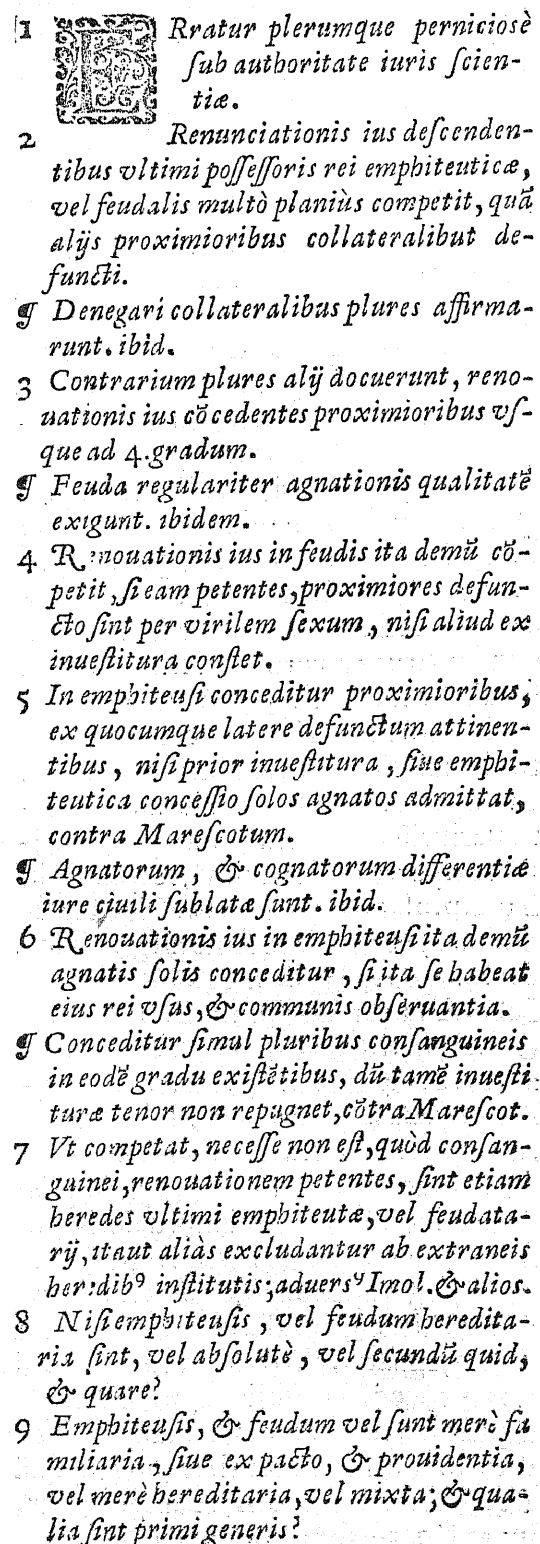 1 ERratur plerumque perniciosè
ſub authoritate iuris ſcien-
tiæ.
2 Renunciationis ius deſcenden-
tibus vltimi poſſeſſoris rei emphiteuticæ,
vel feudalis multò planiùs competit, quã
alijs proximioribus collateralibut de-
functi.
¶ Denegari collateralibus plures affirma-
runt. ibid.
3 Contrarium plures alij docuerunt, reno-
uationis ius cõcedentes proximioribus vſ-
que ad 4. gradum.
¶ Feuda regulariter agnationis qualitatẽ
exigunt. ibidem.
4 Renouationis ius in feudis ita demũ cõ-
petit, ſi eam petentes, proximiores defun-
cto ſint per virilem ſexum, niſi aliud ex
inueſtitura conſtet.
5 In emphiteuſi conceditur proximioribus,
ex quocumque latere defunctum attinen-
tibus, niſi prior inueſtitura, ſiue emphi-
teutica conceſſio ſolos agnatos admittat,
contra Mareſcotum.
¶ Agnatorum, & cognatorum differentiæ
iure ciuili ſublatæ ſunt. ibid.
6 Renouationis ius in emphiteuſi ita demũ
agnatis ſolis conceditur, ſi ita ſe habeat
eius rei vſus, & communis obſeruantia.
¶ Conceditur ſimul pluribus conſanguineis
in eodẽ gradu exiſtẽtibus, dũ tamẽ inueſti
turæ tenor non repugnet, cõtra Mareſcot.
7 Vt competat, neceſſe non eſt, quòd conſan-
guinei, renouationem petentes, ſint etiam
heredes vltimi emphiteutæ, vel feudata-
rij, itaut aliàs excludantur ab extraneis
heredibꝰ inſtitutis; aduersꝰ Imol. & alios.
8 Niſi emphiteuſis, vel feudum heredita-
ria ſint, vel abſolutè, vel ſecundũ quid,
& quare?
9 Emphiteuſis, & feudum vel ſunt merè fa
miliaria, ſiue ex pacto, & prouidentia,
vel merè hereditaria, vel mixta; & qua-
lia ſint primi generis?